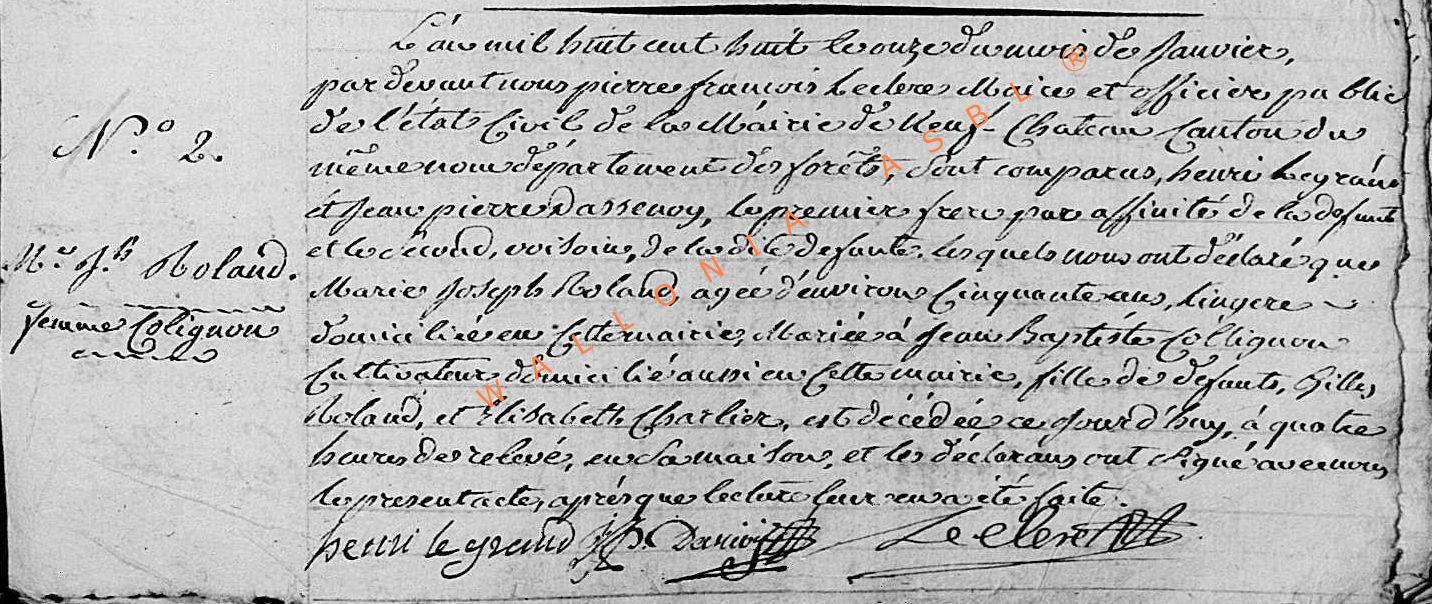 L'an mil huit cent huit le onze du mois de Janvier,
par devant nous pierre françois Leclerc Maire et officier public
N.º 2.
de l'état Civil de la Mairie de Neuf-Chateau Canton du
même nom département des forêts, Sont comparus, henri Legrand
et Jean pierre Dassenoy, le premier frere par affinité de la defunte
et le second, voisoin, de la dite defunte. lesquels nous ont déclaré que
M.ie J.h Roland.
Marie Joseph Roland, agée d'environ Cinquante ans, Lingere
femme Colignon
domiciliée en Cette mairie, Mariée à Jean Baptiste Collignon
Cultivateur domicilié aussi en Cette mairie, fille de defunts, Gilles
Roland, et Elisabeth Charlier, est décédée ce jourd'huy, à quatre
heures de relevé, en Sa maison, et les déclarans ont Signé avec nous
le present acte, aprés que lecture leur en a été faite.
henri le grand J.P. Leclerc
WALLONIA ASBL ®